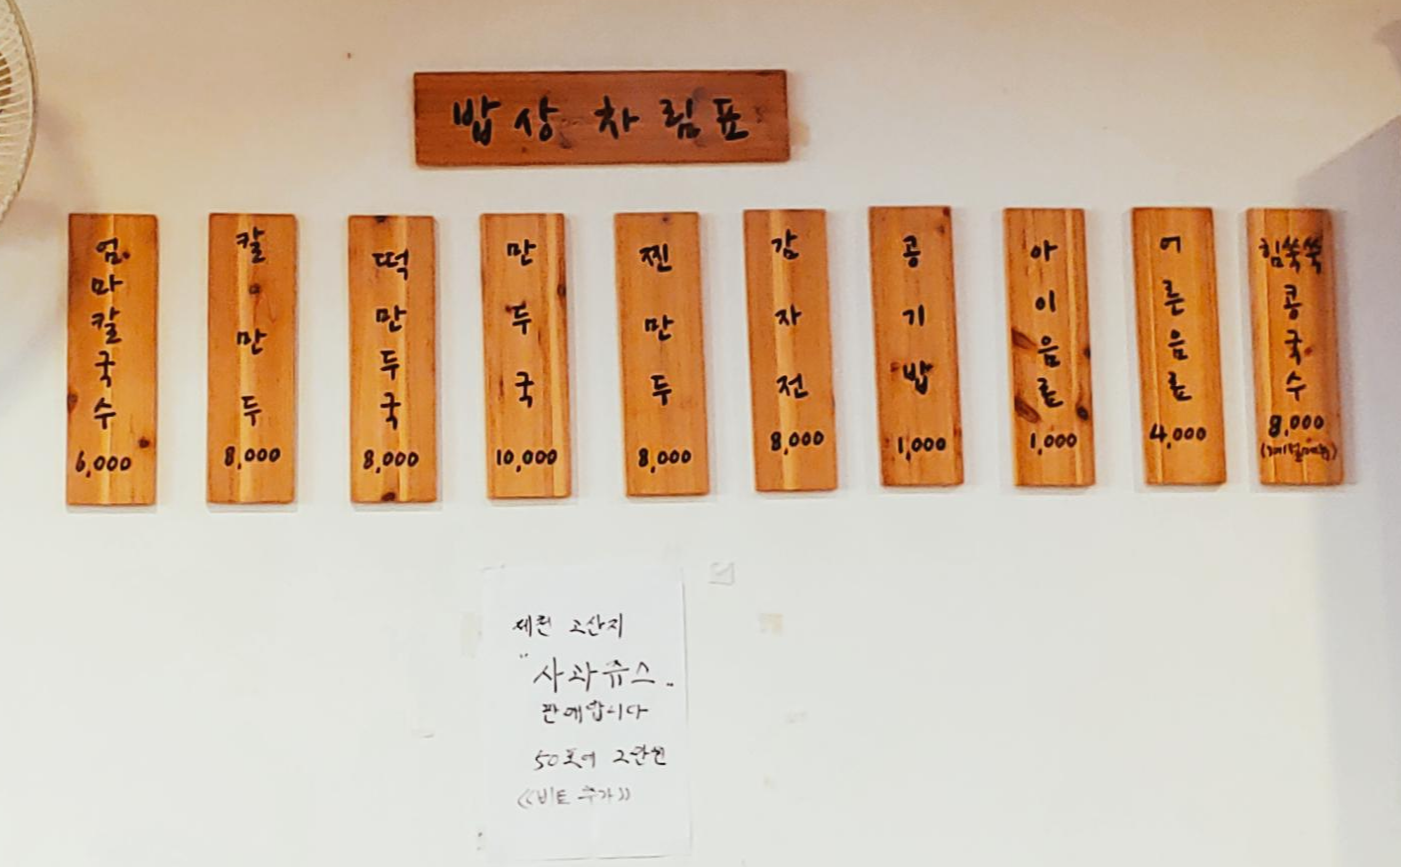 밥상 차림표
엄마칼국수
6,000
칼만두
8,000
떡만두국
8,000
만두국
10,000
찐만두
8,000
감자전
8,000
공기밥
1,000
아이음료
1,000
어른음료
4,000
힘쑥쑥
콩국수
8,000
(계절메뉴)
제천 고산지
"사과쥬스"
판매합니다
50포에 2만원
((비트 추가))